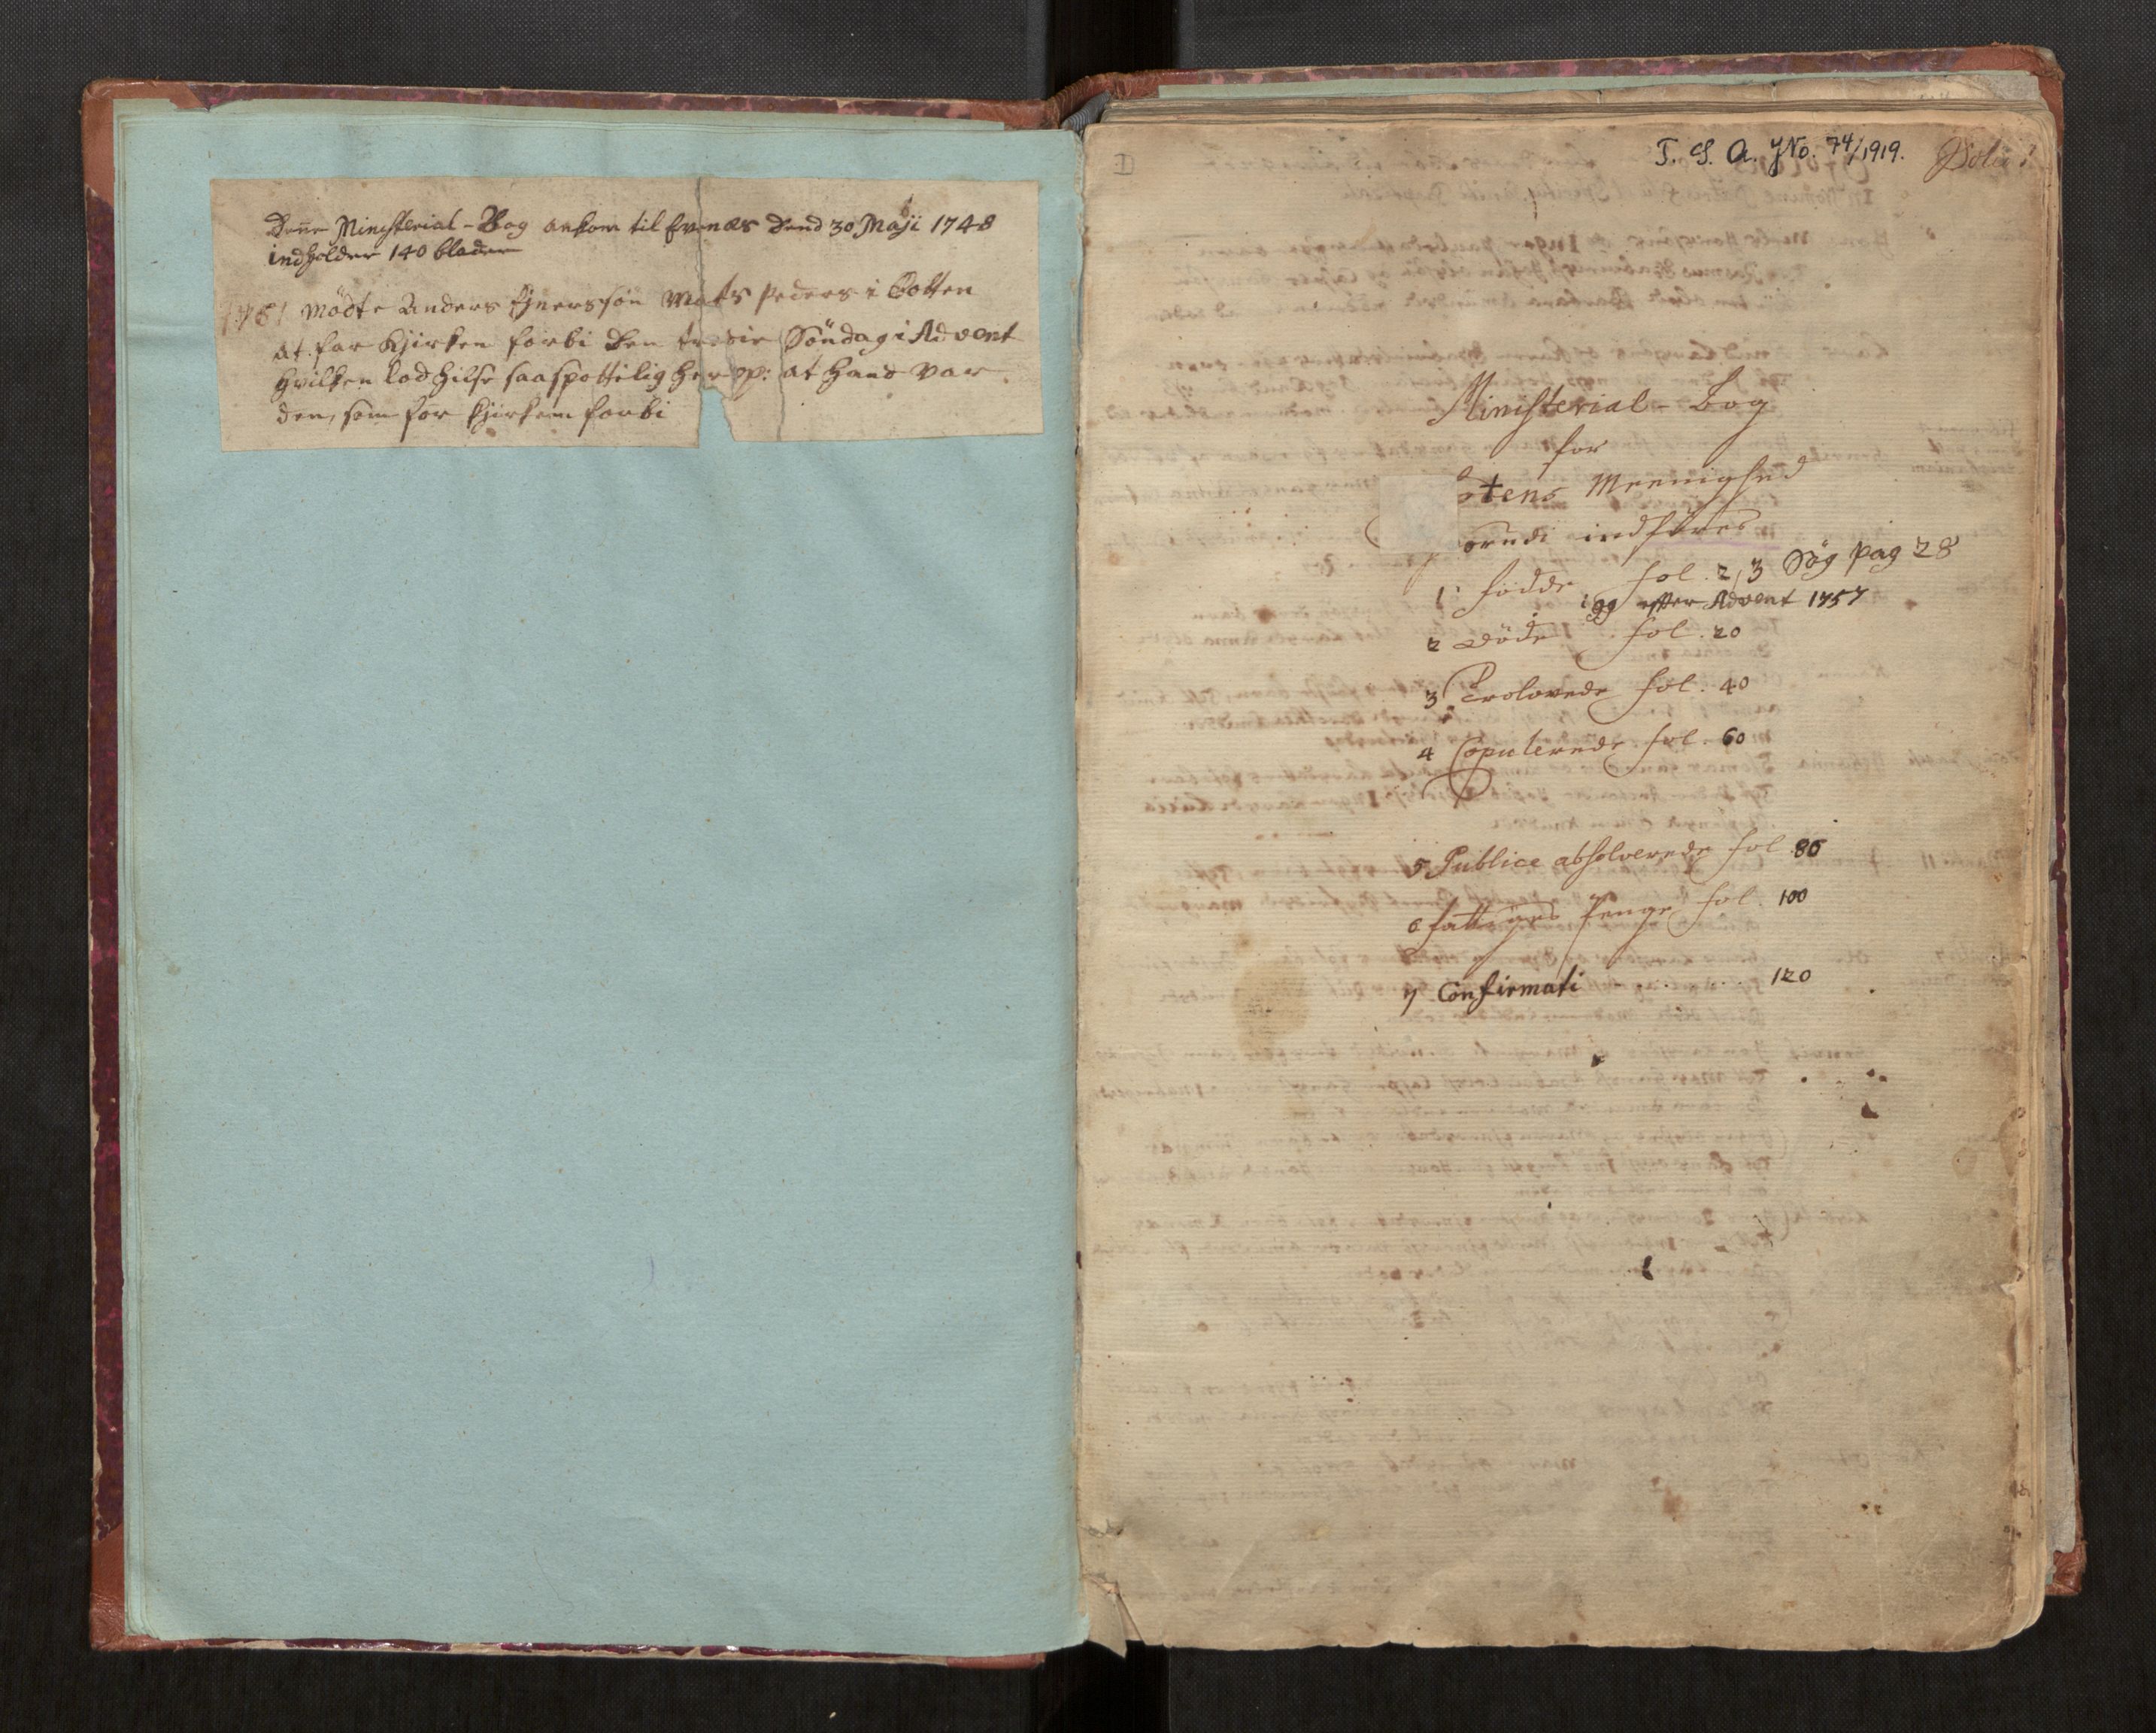 Dene Ministerial-Bog ankom til Evenæs dend 30 Maji 1748
indholder 140 blader
1751 Mødte Anders Ejnersøn Mats Peders i Botten
at for Kjirken forbi den tredie Søndag i Advent
hvilken lod hilse saa spottelig her op: at hand var
den, som for Kjirken forbi
I
T. S. A. JNo. 74/1919.
Ministerial-Bog
for
otens Meenighed
indføres
1 fødde fol. 2, 3 Søg pag 28
efter Advent 1757
2 døde fol. 20
3 Trolovede fol. 40
4 Copulerede fol. 60
5 Publice absolverede fol 80
6 fattiges Penge fol. 100
7 Confirmati . . . . 120